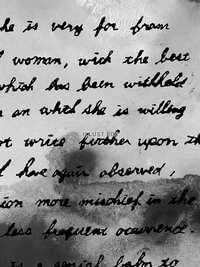 he is very far from
woman, with the best
which has been withheld
an which she is willing
ot write further upon th
I have again observed,
ion more mischief in the
less frequent occurrence.
is a genial balm to